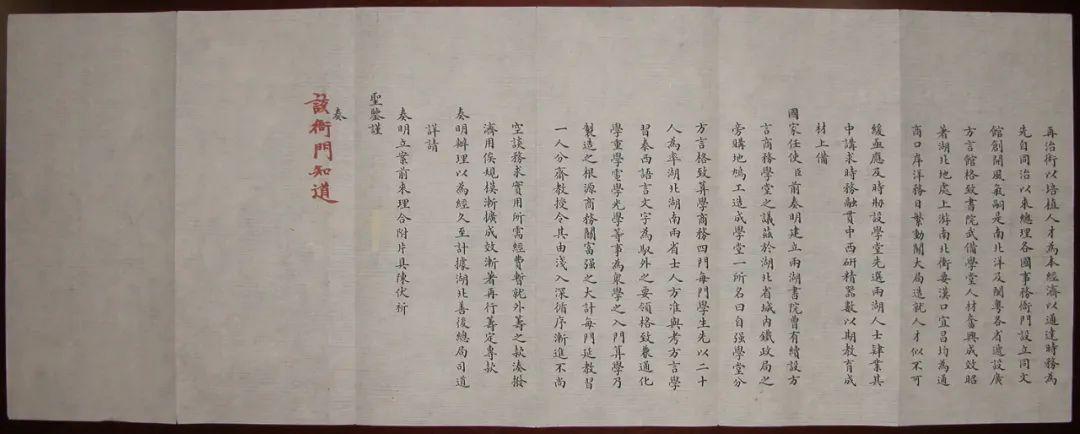 再治術以培植人才為本經濟以通達時務為
先自同治以來總理各國事務衙門設立同文
館創開風氣嗣是南北洋及閩粵各省遞設廣
方言館格致書院武備學堂人材奮興成效昭
著湖北地處上游南北衝要漢口宜昌均為通
商口岸洋務日繁動關大局造就人才似不可
緩亟應及時刱設學堂先選兩湖人士肄業其
中講求時務融貫中西研精器數以期教育成
材上備
國家任使臣前奏明建立兩湖書院曾有續設方
言商務學堂之議茲於湖北省城內鐵政局之
旁購地鳩工造成學堂一所名曰自強學堂分
方言格致算學商務四門每門學生先以二十
人為率湖北湖南兩省士人方准與考方言學
習泰西語言文字為馭外之要領格致兼通化
學重學電學光學等事為眾學之入門算學乃
製造之根源商務關富強之大計每門延教習
一人分齋教授令其由淺入深循序漸進不尚
空談務求實用所需經費暫就外籌之款湊撥
濟用俟規模漸擴成效漸著再行籌定專款
奏明辦理以為經久之計據湖北善後總局司道
詳請
奏明立案前來理合附片具陳伏祈
聖鑒謹
奏
該衙門知道